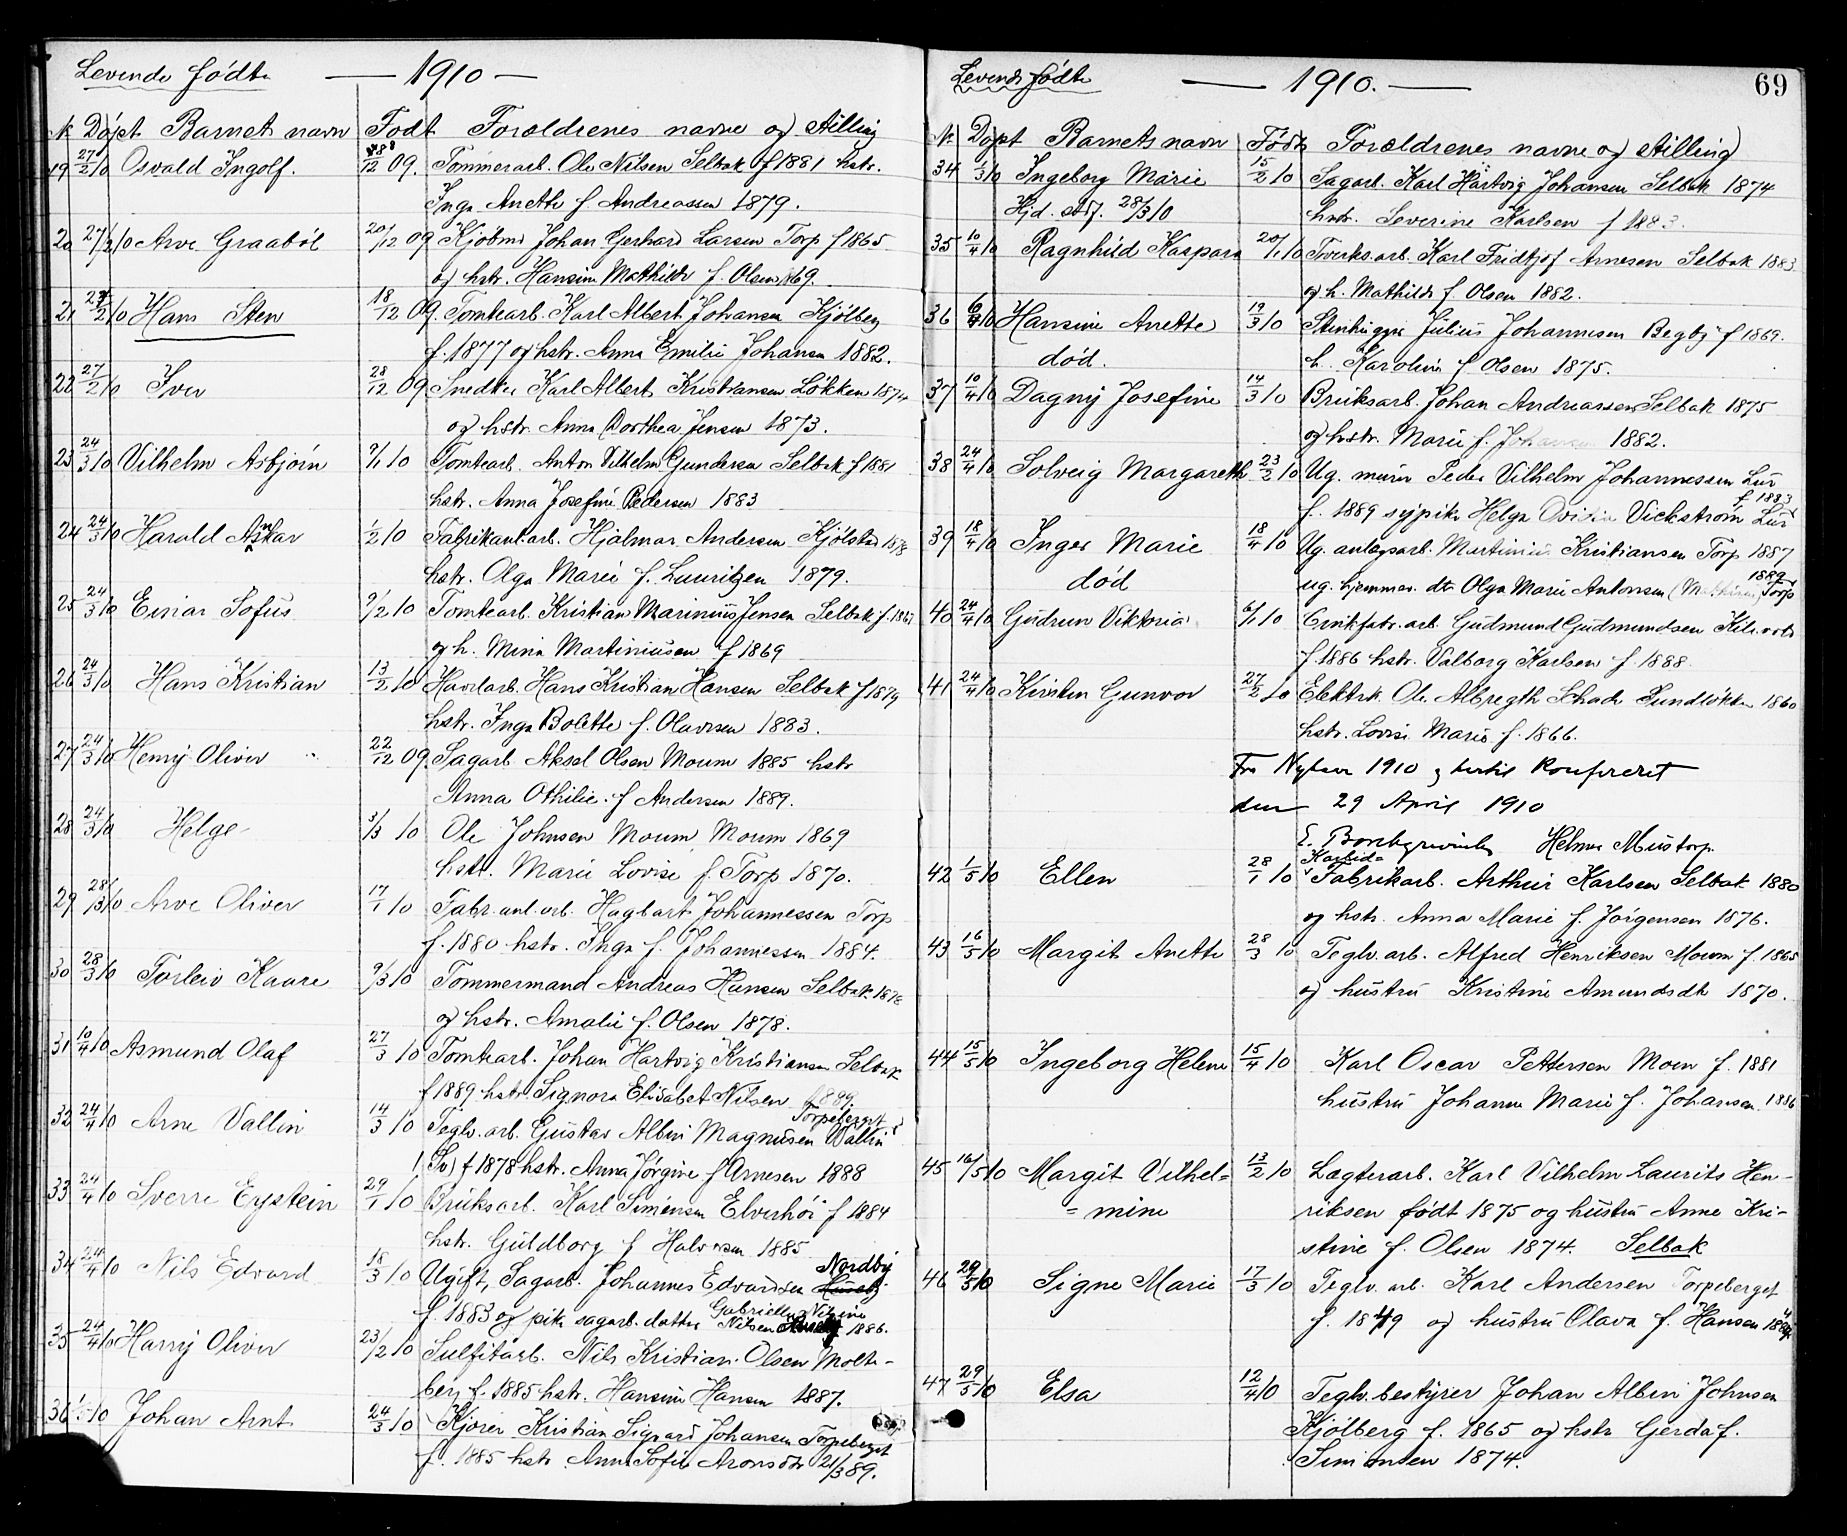 Levende fødte — 1910 —
No Døpt Barnets navn Født Forældrenes navne og stilling
19 27/2 10 Osvald Ingolf. 28/12 09. Tømmerarb. Ole Nilsen Selbak f 1881 hstr.
Inga Anette f. Andreassen 1879.
20 27/2 10 Arve Graabøl 20/12 09 Kjøbmd Johan Gerhard Larsen Torp f 1865
og hstr. Hansine Mathilde f. Olsen 1869.
21 27/2 10 Hans Sten 18/12 09. Tomtearb. Karl Albert Johansen Kjølberg
f. 1877 og hstr. Anna Emilie Johansen 1882.
22 27/2 10 Iver 28/12 09 Snedker Karl Albert Kristiansen Løkken 1874
og hstr. Anna Dorthea Jensen 1873.
23 24/3 10 Vilhelm Asbjørn 9/1 10 Tomtearb. Anton Vilhelm Gundersen Selbak f 1881
hstr. Anna Josefine Pedersen 1883
24 24/3 10 Harald Anskar 1/2 10 Fabrikant.arb. Hjalmar Andersen 1878
hstr. Olga Marie f. Lauritzen 1879.
25 24/3 10 Einar Sofus 9/2 10 Tomtearb. Kristian Marinius Jensen Selbak f. 1867
og h. Mina Martiniusen f 1869
26 24/3 10 Hans Kristian 13/2 10 Hans Kristian Hansen Selbak f 1879
hstr. Inga Bolette f. Olavesen 1883.
27 24/3 10 Henry Oliver 22/12 09. Sagarb. Aksel Olsen Moum 1885 hstr
Anna Othilie f Andersen 1889.
28 24/3 10 Helge 3/3 10 Ole Johnsen Moum, Moum 1869
hstr. Marie Lovise f. Torp 1870.
29 28/3 10 Arve Oliver 17/1 10 Fabr. anl. arb. Hagbart Johannessen Torp
f. 1880 hstr. Inga f. Johannessen 1884.
30 28/3 10 Torleiv Kaare 9/3 10 Tømmermand Andreas Hansen Selbak 1878
og hstr. Amalie f. Olsen 1878.
31 10/4 10 Asmund Olaf 27/3 10 Tomtearb. Johan Hartvig Kristiansen Selbak
f 1889 hstr. Signora Elisabet Nilsen 1889.
32 24/4 10 Arne Vallin 14/3 10 Teglv. arb. Gustav Albin Magnusen Wallin Torpeberget
(Sv) f 1878 hstr. Anna Jørgine f Arnesen 1888
33 24/4 10 Sverre Eystein 29/1 10 Bruksarb. Karl Simensen Elverhøi f 1884
hstr. Guldborg f Halvorsen 1885
34 24/4 10 Nils Edvard 18/3 10 Ugift, Sagarb. Johannes Edvardsen Nordby
f. 1883 og pike sagarb. datter Gabrielle Nilsine Nilsen 1886.
35 24/4 10 Harry Oliver 23/2 10 Sulfitarb. Nils Kristian Olsen Molte-
berg f. 1885 hstr. Hansine Hansen 1887.
36 1/5 10 Johan Arnt 24/3 10 Kjører Kristian Sigvard Johansen Torpeberget
f. 1885 hstr Anna Sofie Aronsdtr 21/3 89.
Levende fødte — 1910. — 69
No Døpt Barnets navn Født Forældrenes navne og stilling
34 1/3 10 Ingeborg Marie 15/2 10 Sagarb. Karl Hartvig Johansen Selbak 1874
Hjd. 28/3 10 hstr. Severine Karlsen f 1883.
35 10/4 10 Ragnhild Kaspara 20/1 10 Karl Fridtjof Arnesen Selbak 1883
og h. Mathilde f. Olsen 1882.
36 6/4 10 Hansine Anette 19/3 10 Stenhugger Julius Johannesen Begby f 1869.
død. h. Karoline f Olsen 1875.
37 10/4 10 Dagny Josefine 14/3 10 Bruksarb. Johan Andreassen Selbak 1875
og hstr. Marie f. Johansen 1882.
38 24/4 10 Solveig Margareth 23/2 10 Ug. murer Peder Vilhelm Johannessen Lur
f. 1889 sypike Helga Vickstrøm Lur f 1883
39 18/4 10 Inger Marie 18/4 10 Ug. anlægsarb. Martinius Kristiansen Torp 1887
død ug. hjemmev. dtr Olga Marie Antonsen Torp 1889
40 24/4 10 Gudrun Viktoria 6/1 10 Gudmund Gudmundsen
f. 1886 hstr. Valborg Karlsen f. 1888.
41 24/4 10 Kirsten Gunvor 27/2 10 Elektrk. Ole Albregth Schade Sundløkken 1860
hstr. Lovise Marie f. 1866.
Fra Nytaar 1910 og hertil konfereret
den 29 April 1910
E. Borchgrevink Helmer Mustorp.
42 1/5 10 Ellen 28/1 10 Karbid= Fabrikarb. Arthur Karlsen Selbak 1880
og hstr. Anna Marie f. Jørgensen 1876.
43 16/5 10 Margit Anette 28/3 10 Teglv. arb. Alfred Henriksen Moum f. 1865
og hustru Kristine Amundsdtr 1870.
44 15/5 10 Ingeborg Helene 15/4 10 Karl Oscar Pettersen Moen f. 1881
hustru Johanne Marie f. Johansen 1886
45 16/5 10 Margit Vilhel= 13/2 10 Lægterarb. Karl Vilhelm Laurits Hen-
= mine riksen født 1875 og hustru Anne Kri-
stine f. Olsen 1874. Selbak
46 29/5 10 Signe Marie 17/3 10 Teglv. arb. Karl Andersen Torpeberget
f. 1879 og hustru Olava f. Hansen
47 29/5 10 Elsa 12/4 10 Teglv. bestyrer Johan Albin Johnsen
Kjølberg f. 1865 og hstr Gerda f.
Simonsen 1874.